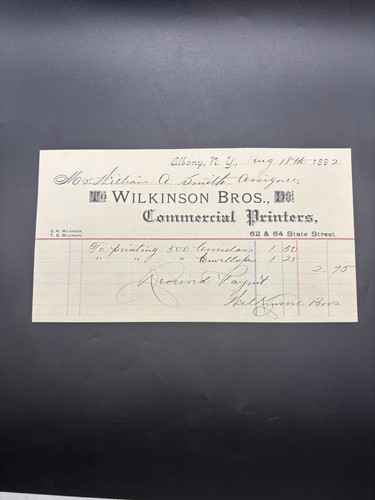 Albany, N. Y., Aug 18th 1892
Mr. William A Smith Assignee,
To WILKINSON BROS., Dr.
Commercial Printers,
S. H. WILKINSON,
T. B. WILKINSON.
62 & 64 State Street.
To printing 500 Circulars 1 50
" " " Envellops 1 25
2 75
Received Paymt
Wilkinson Bros